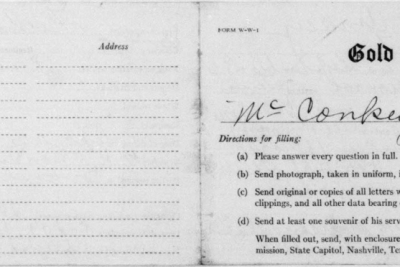 Address
FORM W-W-1
Gold
Directions for filling:
(a) Please answer every question in full.
(b) Send photograph, taken in uniform, i
(c) Send original or copies of all letters w
clippings, and all other data bearing
(d) Send at least one souvenir of his serv
When filled out, send, with enclosure
mission, State Capitol, Nashville, Te